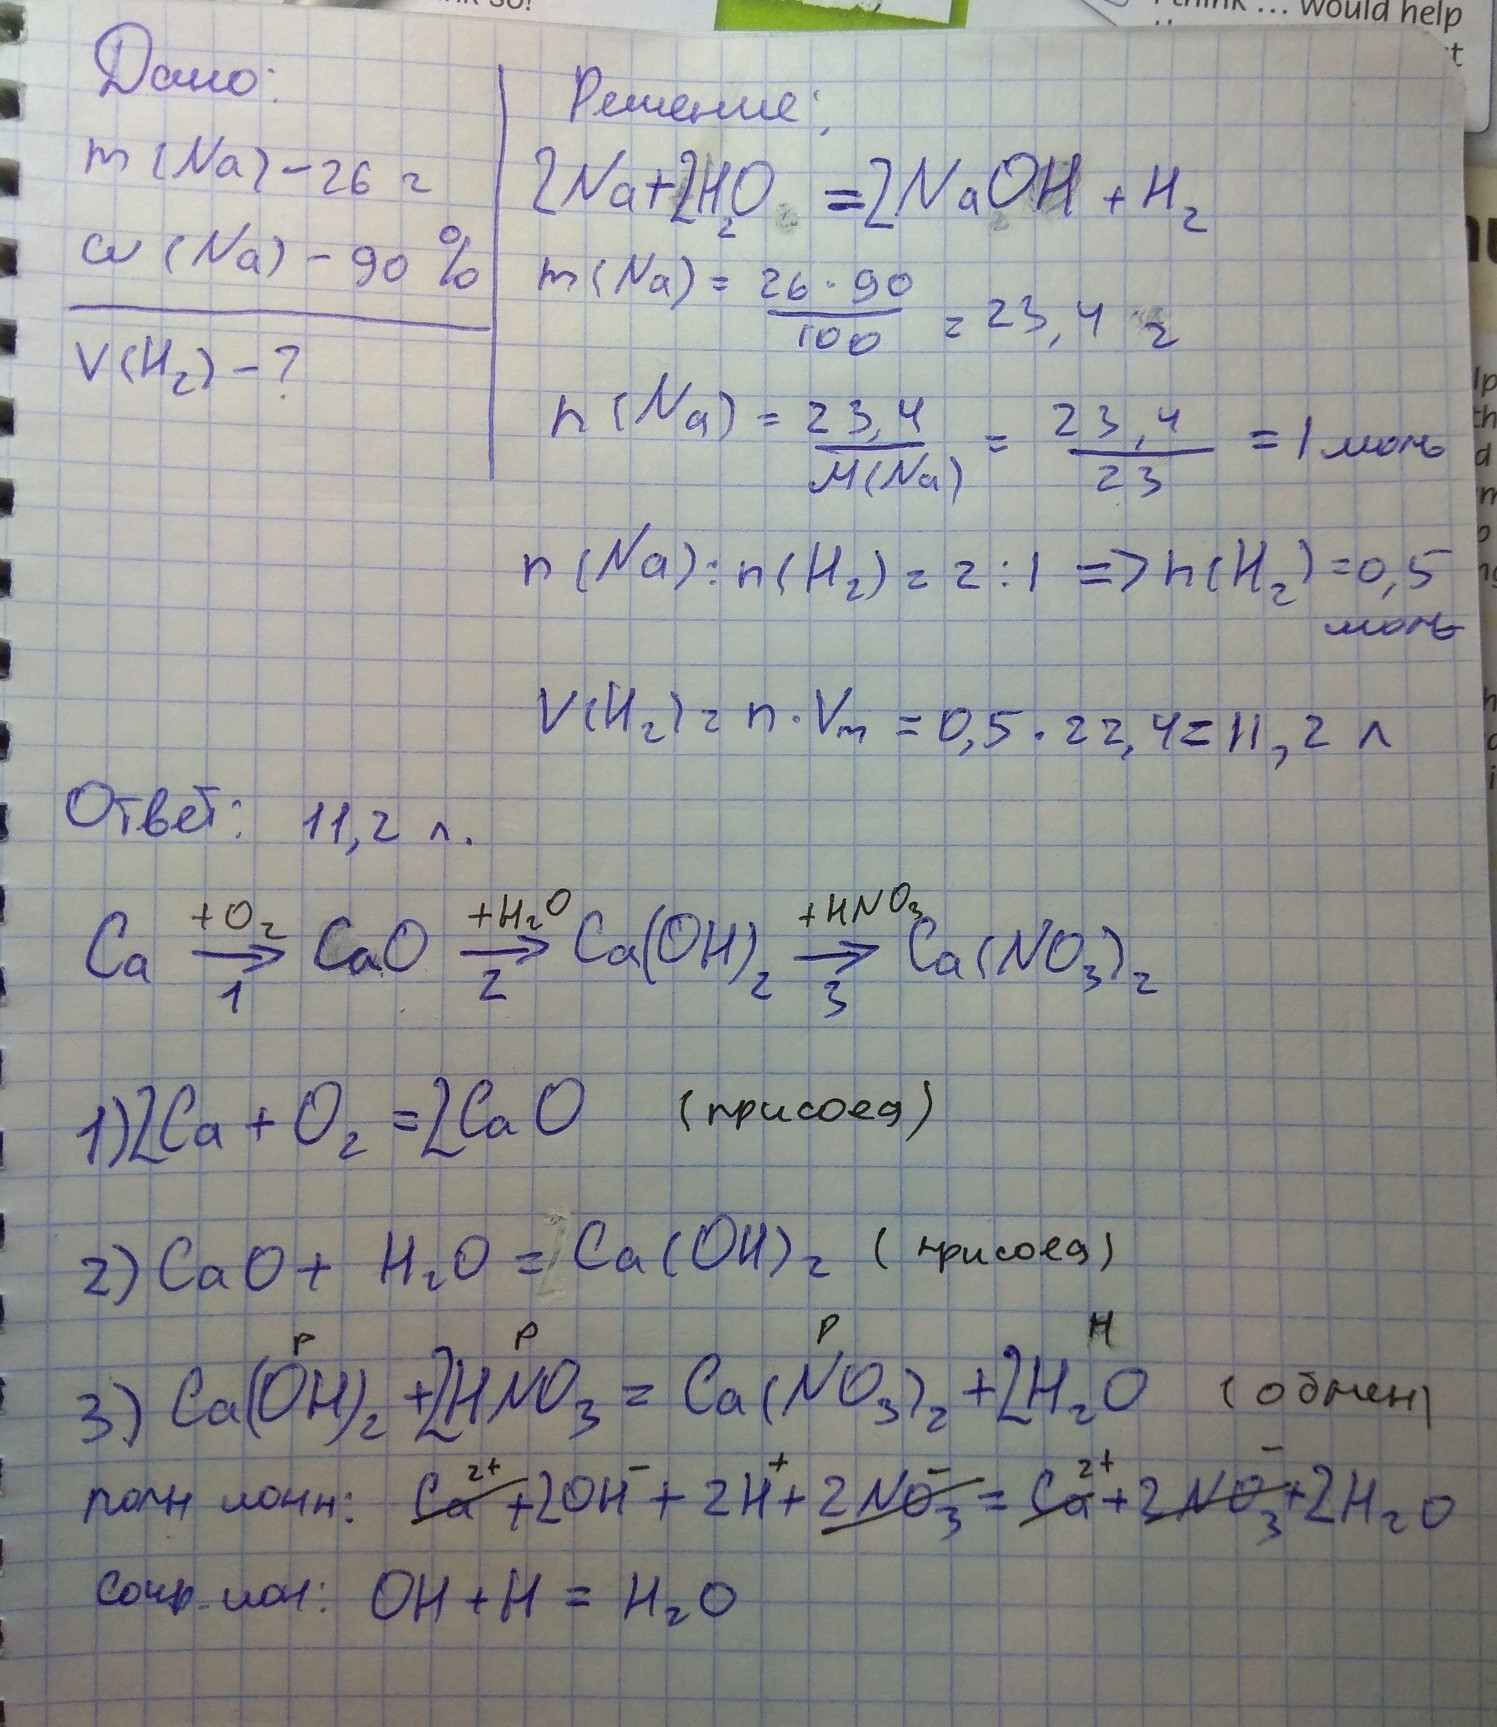 I think ... would help
Дано:
m(Na) - 26 г
ω(Na) - 90 %
V(H₂) - ?
Решение:
2Na + 2H₂O = 2NaOH + H₂
m(Na) = 26 · 90 / 100 = 23,4 г
n(Na) = 23,4 / M(Na) = 23,4 / 23 = 1 моль
n(Na) : n(H₂) = 2 : 1 => n(H₂) = 0,5
моль
V(H₂) = n · Vm = 0,5 · 22,4 = 11,2 л
Ответ: 11,2 л.
+O₂ +H₂O +HNO₃
Ca → CaO → Ca(OH)₂ → Ca(NO₃)₂
1 2 3
1) 2Ca + O₂ = 2CaO (присоед)
2) CaO + H₂O = Ca(OH)₂ (присоед)
р р р н
3) Ca(OH)₂ + 2HNO₃ = Ca(NO₃)₂ + 2H₂O (обмен)
полн ионн: Ca²⁺ + 2OH⁻ + 2H⁺ + 2NO₃⁻ = Ca²⁺ + 2NO₃⁻ + 2H₂O
сокр ион: OH + H = H₂O